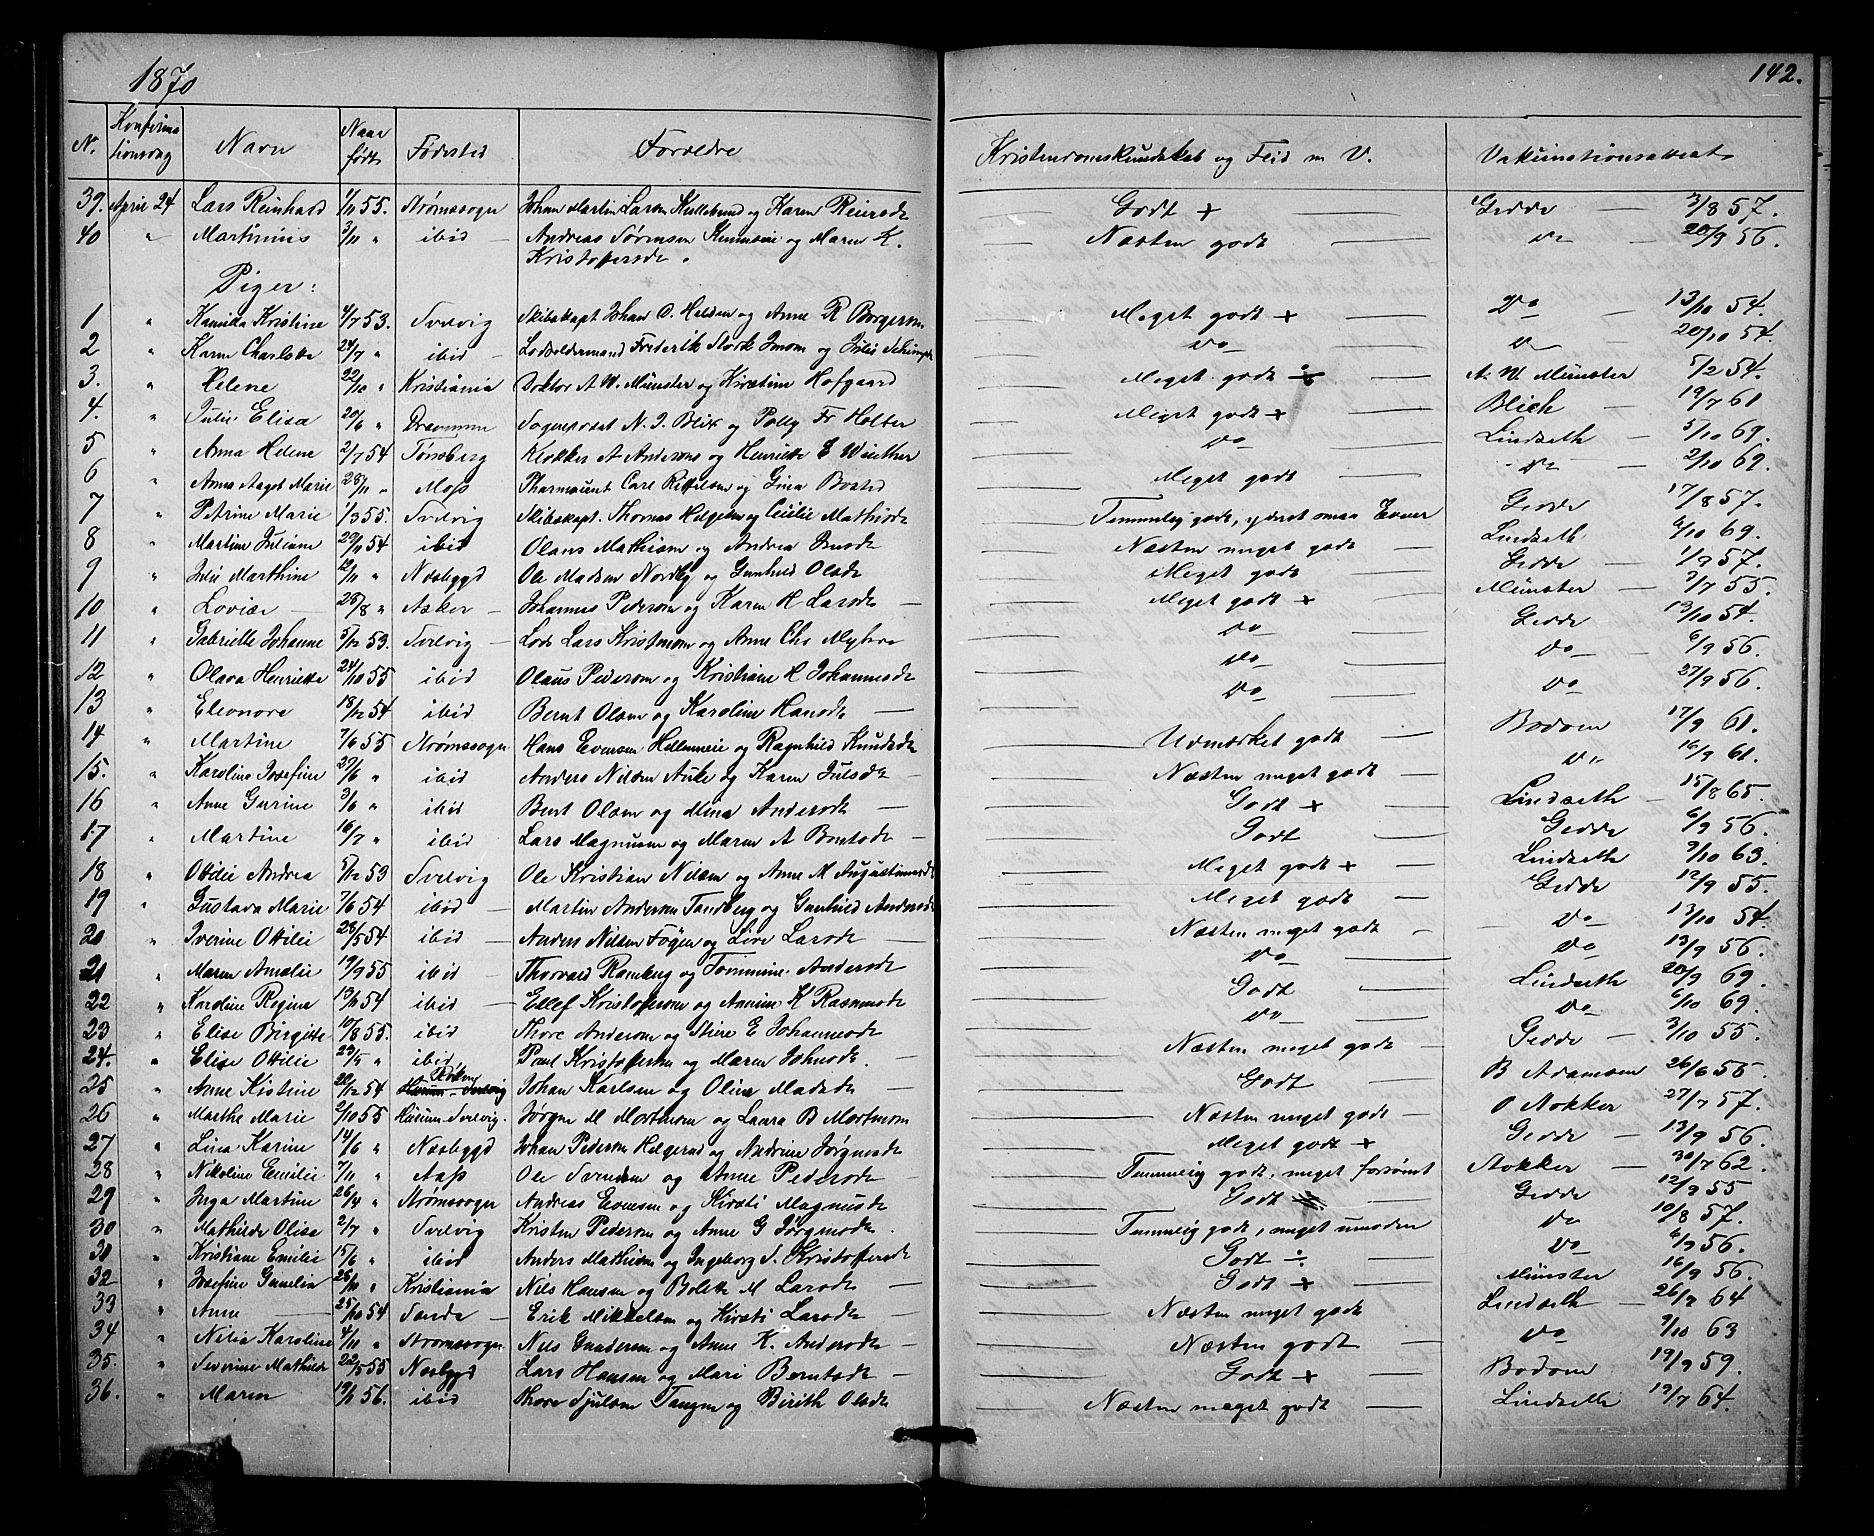 1870
142.
N. Konfirmationsdag Navn Naar født Fødested Forældre Kristendomskundskab og Flid m V. Vakcinationsattest
39. April 24 Lars Reinhard 1/11 55. Strømssogn Johan Martin Larsen Kullebund og Karen Reiersdtr Godt + Gedde 3/8 57.
40 " Martinius 3/11 " ibid Andreas Sørensen og Maren K. Næsten godt Do 20/9 56.
Kristoffersdtr.
Piger:
1 " Kamilla Kristine 4/7 53. Svelvig Skibskapt Johan O. Helsen og Anne R Borgersen Meget godt + Do 13/10 54.
2 " Karen Charlotte 24/7 " ibid Lodsoldermand Frederik Stork og Julie Do Do 20/10 54.
3. " Helene 22/10 " Kristiania Doktor A. W. Münster og Kirstine Hofgaard Meget godt ÷ A. W. Münster 5/2 54.
4. " Julie Elisa 20/6 " Drammen Sogneprest N. J. Blix og Polly Fr Holter Meget godt + Blich 19/7 61
5 " Anna Helene 2/7 54 Tønsberg Klokker A Andersens og Henriette E Winther Do Lindseth 5/10 69.
6 " Anna Aagot Marie 28/11 " Moss Pharmaceut Carl og Gina Meget godt Do 2/10 69.
7 " Petrine Marie 1/3 55. Svelvig Skibskapt. Thomas Helgesen og Cecilie Mathisdtr Temmelig godt, yderst Evner Gedde 17/8 57.
8 " Martine Juliane 29/11 54 ibid Olaus Mathisen og Andrea Næsten meget godt Lindseth 6/10 69.
9 " Julie Marthine 12/11 " Næsbygd Ole Madsen Nordby og Gunhild Olsdtr Meget godt Gedde 1/9 57.
10 " Lovise 25/8 " Asker Johannes Pedersen og Karen H Larsdtr Meget godt + Münster 3/7 55.
11 " Gabrielle Johanne 5/12 53. Svelvig Lods Lars Kristensen og Anne Chs Myhre Do Gedde 13/10 54.
12 " Olava Henriette 24/10 55 ibid Olaus Pedersen og Kristiane H Johannesdtr Do Do 6/9 56.
13 " Eleonore 18/12 54 ibid Bernt Olsen og Karoline Hansdtr Do Do 27/9 56.
14 " Martine 7/6 55 Strømssogn Hans Evensen Hellumeie og Ragnhild Knudsdtr Udmærket godt Bodom 17/9 61.
15. " Karoline Josefine 27/6 " ibid Anders Nilsen Auke og Karen Julsdtr Næsten meget godt Do 16/9 61.
16 " Anne Gurine 3/6 " ibid Bernt Olsen og Mina Andersdtr Godt + Lindseth 15/8 65.
17 " Martine 16/7 " ibid Lars Magnusen og Maren A Berntsdtr Godt Gedde 6/9 56.
18 " Ottilie Andrea 5/12 53 Svelvig Ole Kristian Nilsen og Anne M Augustinusdtr Meget godt + Lindseth 9/10 63.
19 " Gustava Marie 7/6 54 ibid Martin Andersen Tandberg og Gunhild Andersdtr Meget godt Gedde 12/9 55.
20 " Iverine Ottilie 28/5 54 ibid Anders Nilsen Togen og Live Larsdtr Næsten meget godt Do 13/10 54.
21 " Maren Amalie 19/9 55 ibid Thorvald Ramberg og Tommine Andersdtr Do Do 13/9 56.
22 " Karoline Regine 13/11 54 ibid Ellef Kristoffersen og Annine K Rasmusdtr Godt Lindseth 20/9 69.
23 " Elise Birgitte 10/8 55. ibid Thore Andersen og Stine E Johannesdtr Do Do 6/10 69.
24. " Elise Ottilie 23/5 " ibid Paul Kristoffersen og Maren Johnsdtr Næsten meget godt Gedde 3/10 55.
25 " Anne Kistine 20/12 54 Røken Johan Karlsen og Oline Madsdtr Godt B Adamsen 26/6 55
26 " Marthe Marie 2/10 55 Hurum-Svelvig. Jørgen M Mortensen og Laura B Mortensen Næsten meget godt O Stokker 27/7 57.
27 " Lina Karine 14/6 " Næsbygd Johan Pedersen Helgerud og Andrine Jørgensdtr Meget godt + Gedde 13/9 56.
28 " Nikoline Emilie 7/11 " Aas Ole Svendsen og Anne Pedersdtr Temmelig godt, meget forsømt Stokker 30/7 62.
29 " Inga Martine 26/4 " Strømssogn Andreas Evensen og Kirsti Magnusdtr Godt Gedde 12/9 55
30 " Mathilde Olisa 2/7 " Svelvig Kristen Pedersen og Anne G Jørgensdtr Temmelig godt, meget umoden Do 10/8 57.
31 " Kristiane Emilie 15/6 " ibid Anders Mathisen og Ingeborg S. Kristoffersdtr Godt ÷ Do 6/9 56.
32 " Josefine Gunelia 28/10 " Kristiania Nils Hansen og Bolette M Larsdtr Godt + Münster 16/9 56.
33 " Anne 25/10 54 Sande Erik Mikkelsen og Kirsti Larsdtr Næsten meget godt Lindseth 26/7 64
34 " Nilia Karoline 4/11 " Strømssogn Nils Gundersen og Anne K. Andersdtr Næsten godt Do 9/10 63
35. " Severine Mathilde 22/5 55 Næsbygd Lars Hansen og Mari Berntsdtr Godt + Bodom 19/9 59.
36. " Maren 19/1 56. ibid Thore Tjulsen Tangen og Birith Olsdtr Næsten meget godt Lindseth 19/7 64.